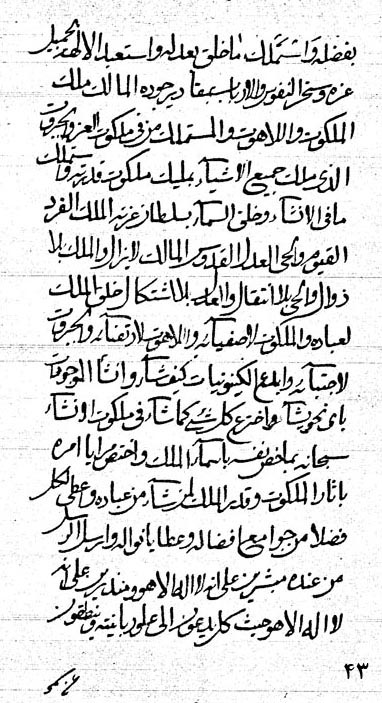 بفضله و استملك ما خلق بعدله و استعبد الالهة بجميل
عزه و سخر النفوس و الارباب بمقادير جوده المالك ملك
الملكوت و اللاهوت و المستملك من فى ملكوت العز و الجبروت
الذى ملك جميع الاشياء بمليك ملكوت قدرته و استملك
ما فى الانشاء و خلق السماء بسلطان عزته الملك الفرد
القيوم و الحى العدل القدوس المالك لا يزال و الملك بلا
زوال و الحى بلا انتقال و العادل بلا اشتكال خلق الملك
لعباده و الملكوت لاصفيائه و اللاهوت لارتقائه و الجبروت
لاجتبائه و ابدع الكينونيات كيف شاء و انشأ الموجودات
باى نحو شاء و اخترع كل شىء كما شاء فى ملكوت الانشاء
سبحانه بما خص نفسه باسماء الملك و اختص ايا امره
باثار الملكوت و قدر الملك لمن شاء من عباده و اعطى الكل
فضلا من جوامع افضاله و عطايا نواله و ارسل الرسل
من عنده مبشرين على انه لا اله الا هو و منذرين على انه
لا اله الا هو حيث كل يدعون الى علو ربانيته و ينطقون
۴۳